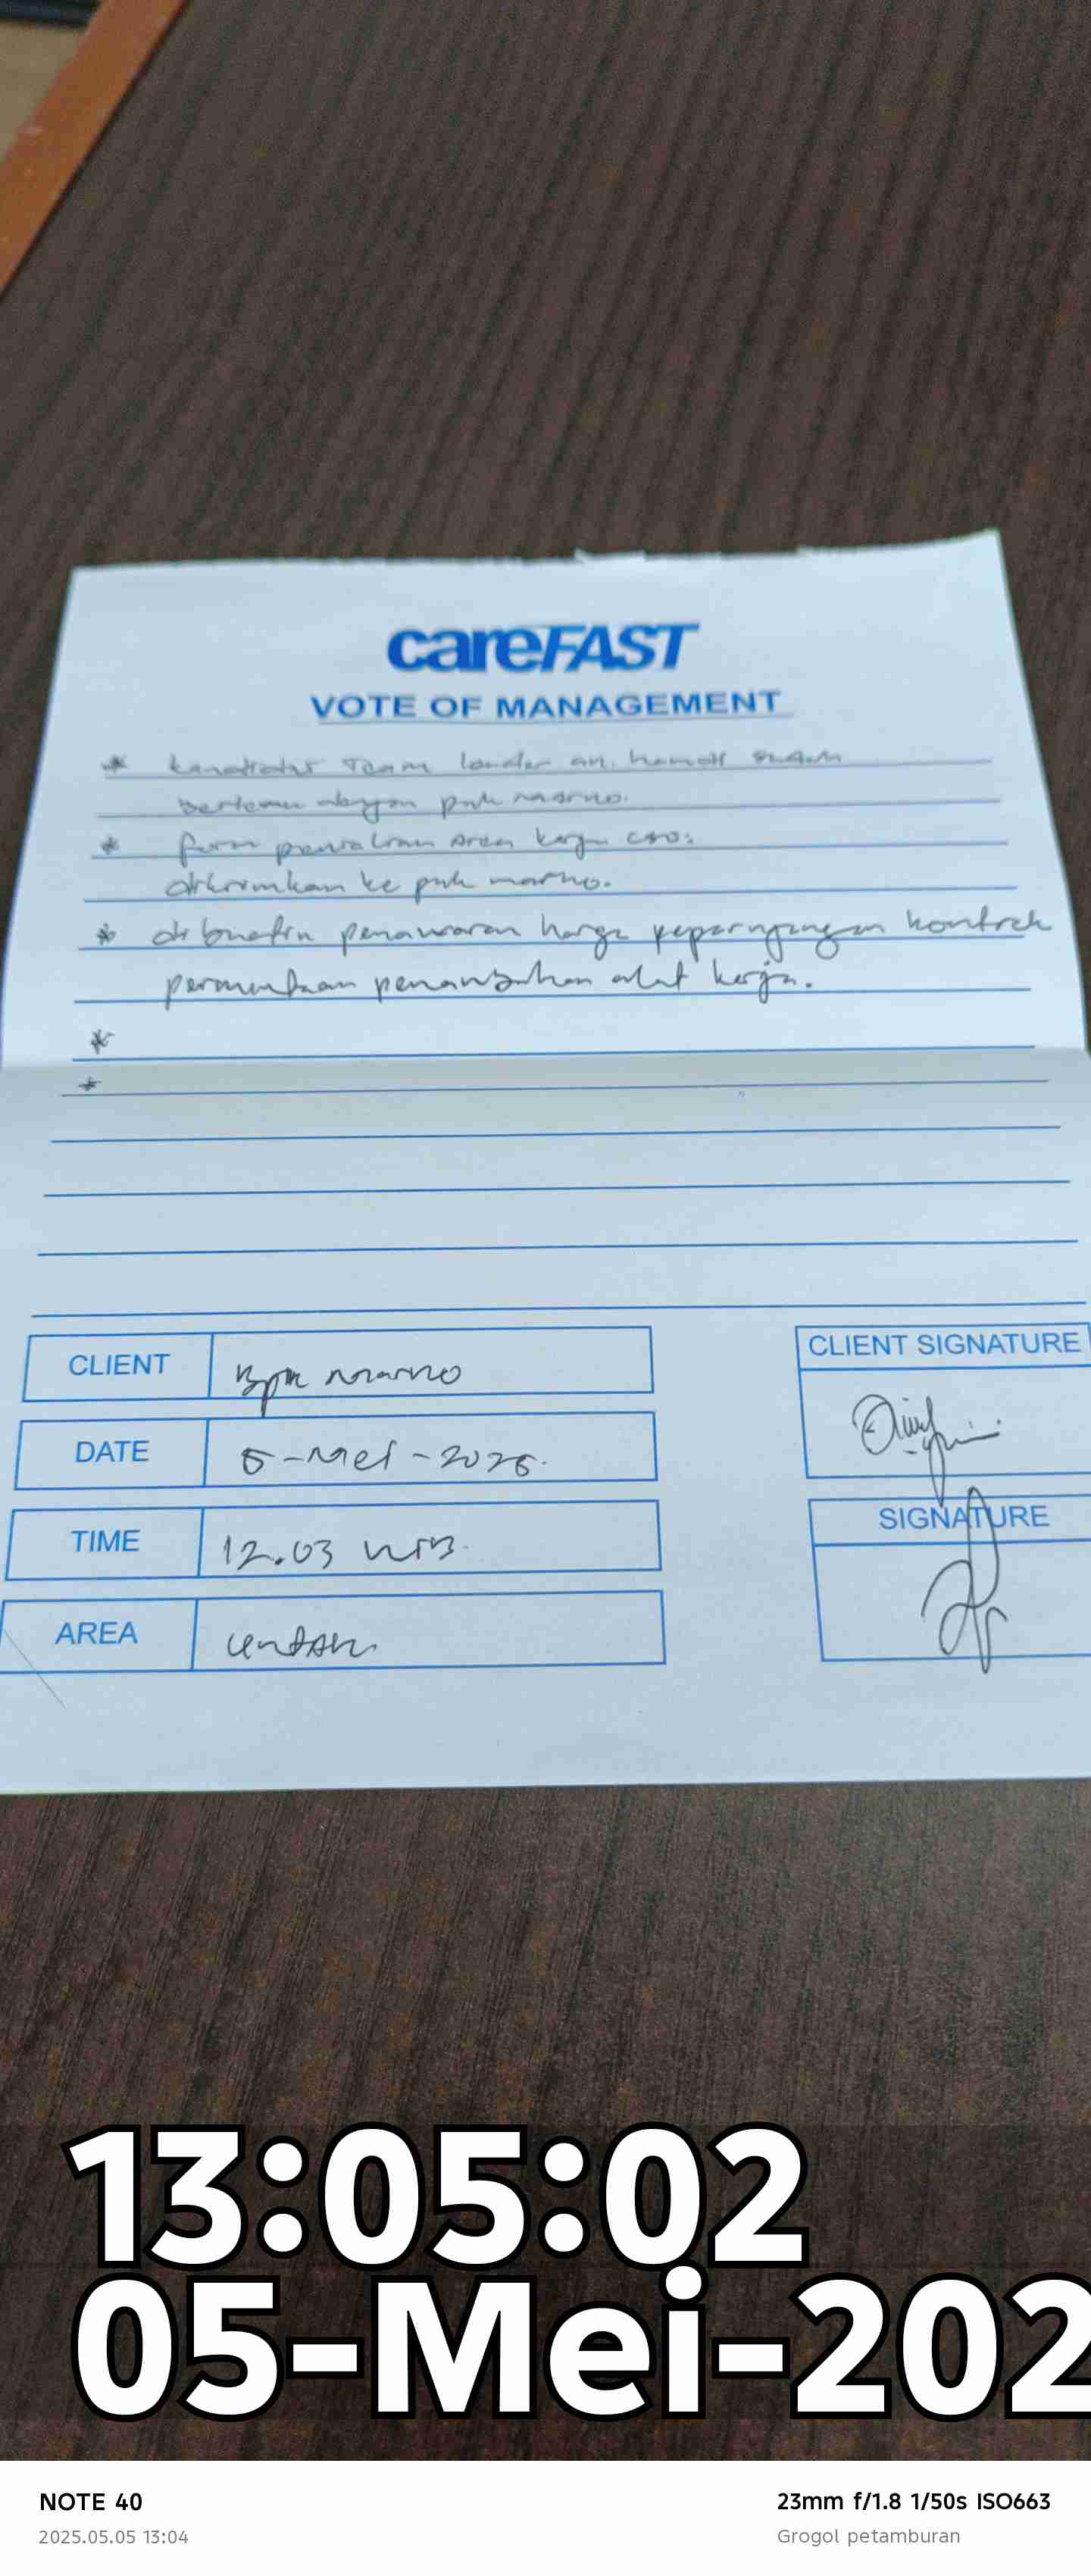 careFAST
VOTE OF MANAGEMENT
* Kandidat Team leader an. hamdi sudah
bertemu dengan pak marno.
* form area kerja cso:
dikirimkan ke pak marno.
* di buatin penawaran harga perpanjangan kontrak
permintaan penambahan alat kerja.
*
*
CLIENT Bpk marno
DATE 5-Mei-2025.
TIME 12.03 WIB.
AREA
CLIENT SIGNATURE
SIGNATURE
13:05:02
05-Mei-202
NOTE 40
2025.05.05 13:04
23mm f/1.8 1/50s ISO663
Grogol petamburan